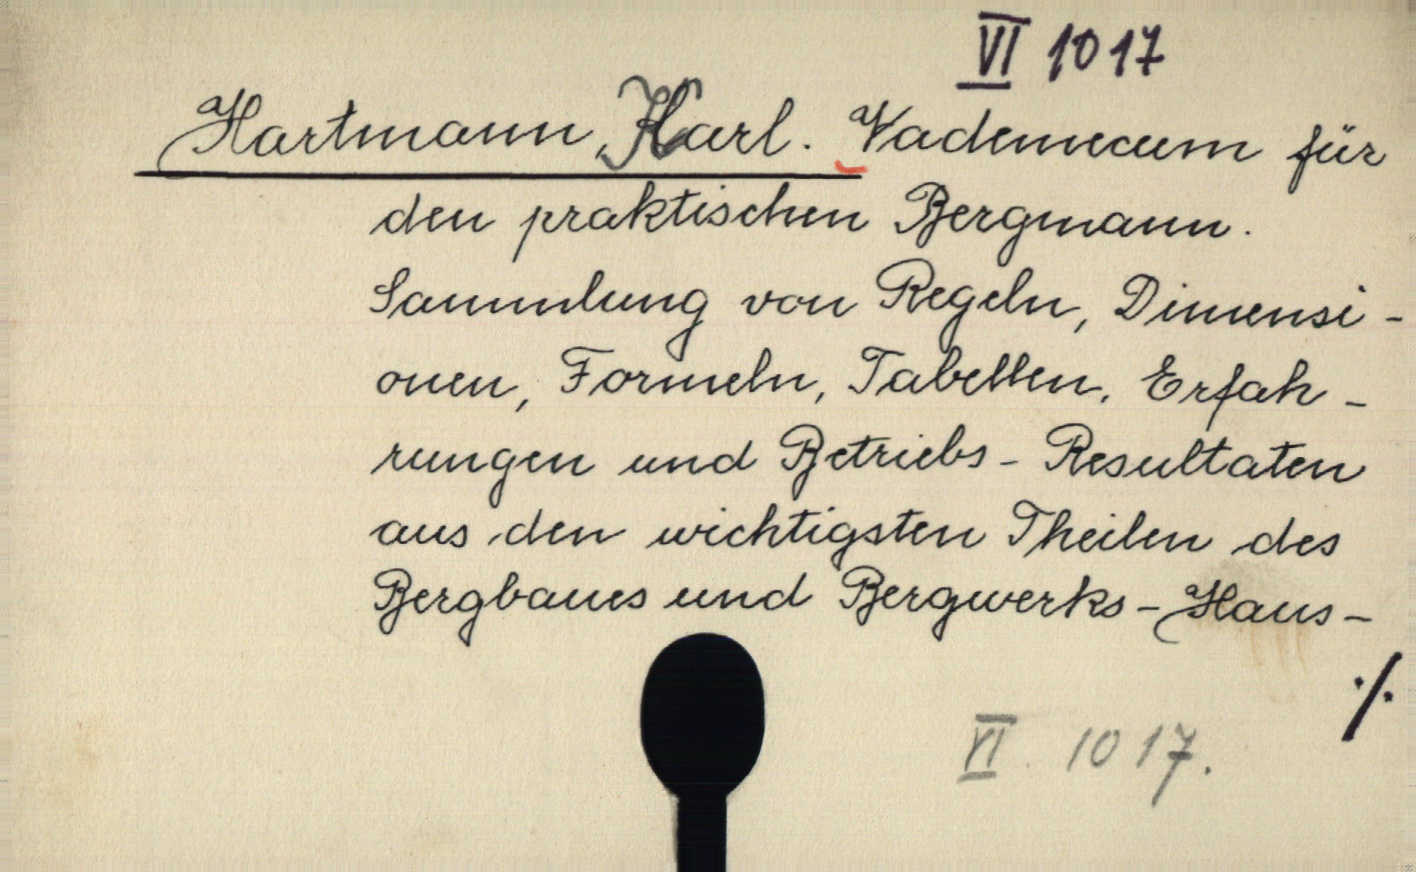 VI 1017
Hartmann, Karl. Vademecum für
den praktischen Bergmann.
Sammlung von Regeln, Dimensi-
onen, Formeln, Tabellen, Erfah-
rungen und Betriebs-Resultaten
aus den wichtigsten Theilen des
Bergbaues und Bergwerks-Haus-
./.
VI 1017.